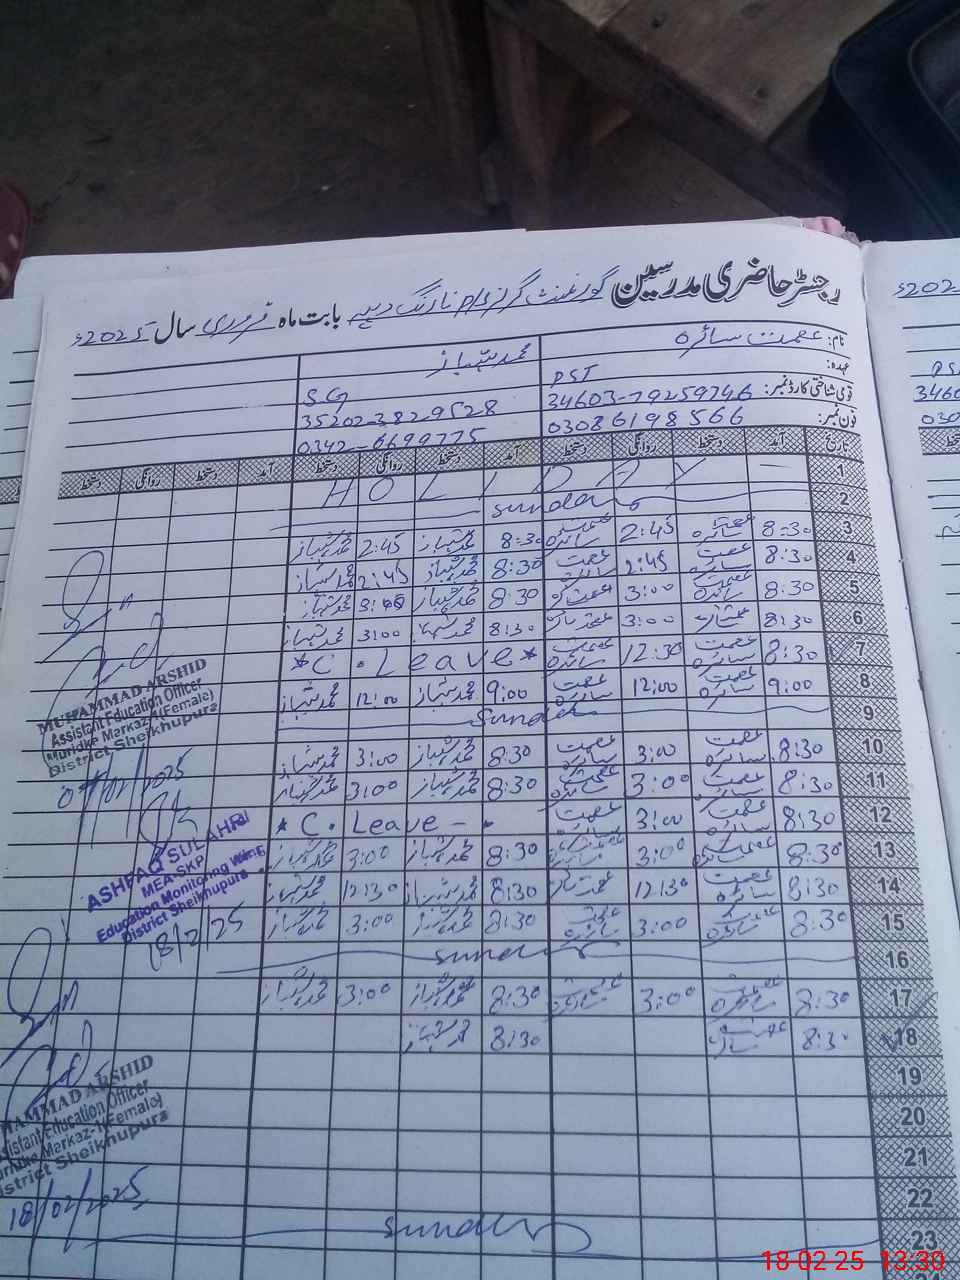 رجسٹر حاضری مدرسین گورنمنٹ گرلز P/S نارنگ دیہہ بابت ماہ فروری سال 2025ء
نام: عصمت سائرہ محمد شہباز
عہدہ: PST S.G
قومی شناختی کارڈ نمبر: 34603-7925974-6 35202-3829528
فون نمبر: 03086198566 0342-6699775
تاریخ آمد دستخط روانگی دستخط آمد دستخط روانگی دستخط آمد دستخط روانگی دستخط
1 HOLIDAY
2 sunday
3 8:30 عصمت سائرہ 2:45 عصمت سائرہ 8:30 محمد شہباز 2:45 محمد شہباز
4 8:30 عصمت سائرہ 2:45 عصمت سائرہ 8:30 محمد شہباز 2:45 محمد شہباز
5 8:30 عصمت سائرہ 3:00 عصمت سائرہ 8:30 محمد شہباز محمد شہباز
6 8:30 عصمت سائرہ 3:00 عصمت سائرہ 8:30 محمد شہباز 3:00 محمد شہباز
7 8:30 عصمت سائرہ 12:30 عصمت سائرہ *C. Leave*
8 9:00 عصمت سائرہ 12:00 عصمت سائرہ 9:00 محمد شہباز 12:00 محمد شہباز
9 Sunday
10 8:30 عصمت سائرہ 3:00 عصمت سائرہ 8:30 محمد شہباز 3:00 محمد شہباز
11 8:30 عصمت سائرہ 3:00 عصمت سائرہ 8:30 محمد شہباز 3:00 محمد شہباز
12 8:30 عصمت سائرہ 3:00 عصمت سائرہ * C. Leave -
13 8:30 عصمت سائرہ 3:00 عصمت سائرہ 8:30 محمد شہباز 3:00 محمد شہباز
14 8:30 عصمت سائرہ 12:30 عصمت سائرہ 8:30 محمد شہباز 12:30 محمد شہباز
15 8:30 عصمت سائرہ 3:00 عصمت سائرہ 8:30 محمد شہباز 3:00 محمد شہباز
16 sunday
17 8:30 عصمت سائرہ 3:00 عصمت سائرہ 8:30 محمد شہباز 3:00 محمد شہباز
18 8:30 عصمت سائرہ 8:30 محمد شہباز
19
20
21
22
23 sunday
MUHAMMAD ARSHID
Assistant Education Officer
Muridke Markaz-1(Female)
District Sheikhupura
07/02/2025
ASHFAQ SULAHRI
MEA-SKP
Education Monitoring Wing
District Sheikhupura
18/2/25
HAMMAD ARSHID
ssistant Education Officer
uridke Markaz-1(Female)
istrict Sheikhupura
18/02/2025
2025ء
PS
3460
030
18-02-25 13:30